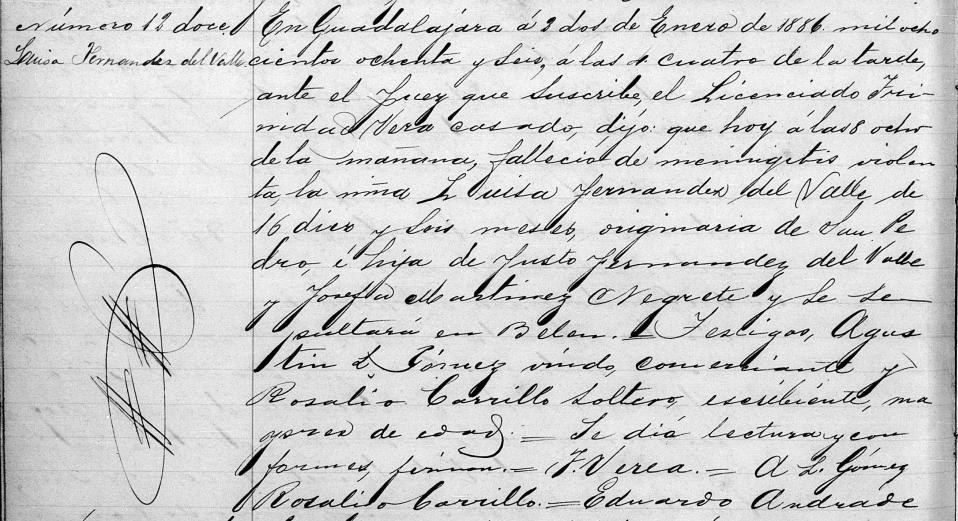 Número 12 doce
Luisa Fernandez del Valle
En Guadalajara á 2 dos de Enero de 1886 mil ocho
cientos ochenta y seis, á las 4 cuatro de la tarde,
ante el Juez que suscribe, el Licenciado Tri-
nidad Verea casado, dijo: que hoy á las 8 ocho
de la mañana, falleció de meningitis violen
ta, la niña Luisa Fernandez del Valle de
16 diez y seis meses, originaria de San Pe
dro, é hija de Justo Fernandez del Valle
y Josefa Martinez Negrete y se se-
pultará en Belen. = Testigos, Agus
tin L. Gómez viudo, comerciante y
Rosalio Carrillo soltero, escribiente, ma
yores de edad. = Se dió lectura y con
formes, firman. = T. Verea. = A L. Gómez
Rosalio Carrillo. = Eduardo Andrade